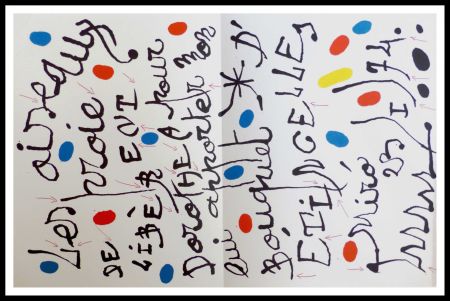 Les oiseaux
DE proie
LIBÈRENT
DOROTHEA pour
lui apporter mon
Bouquet * D'
ETINCELLES
Miró
23 I 74.